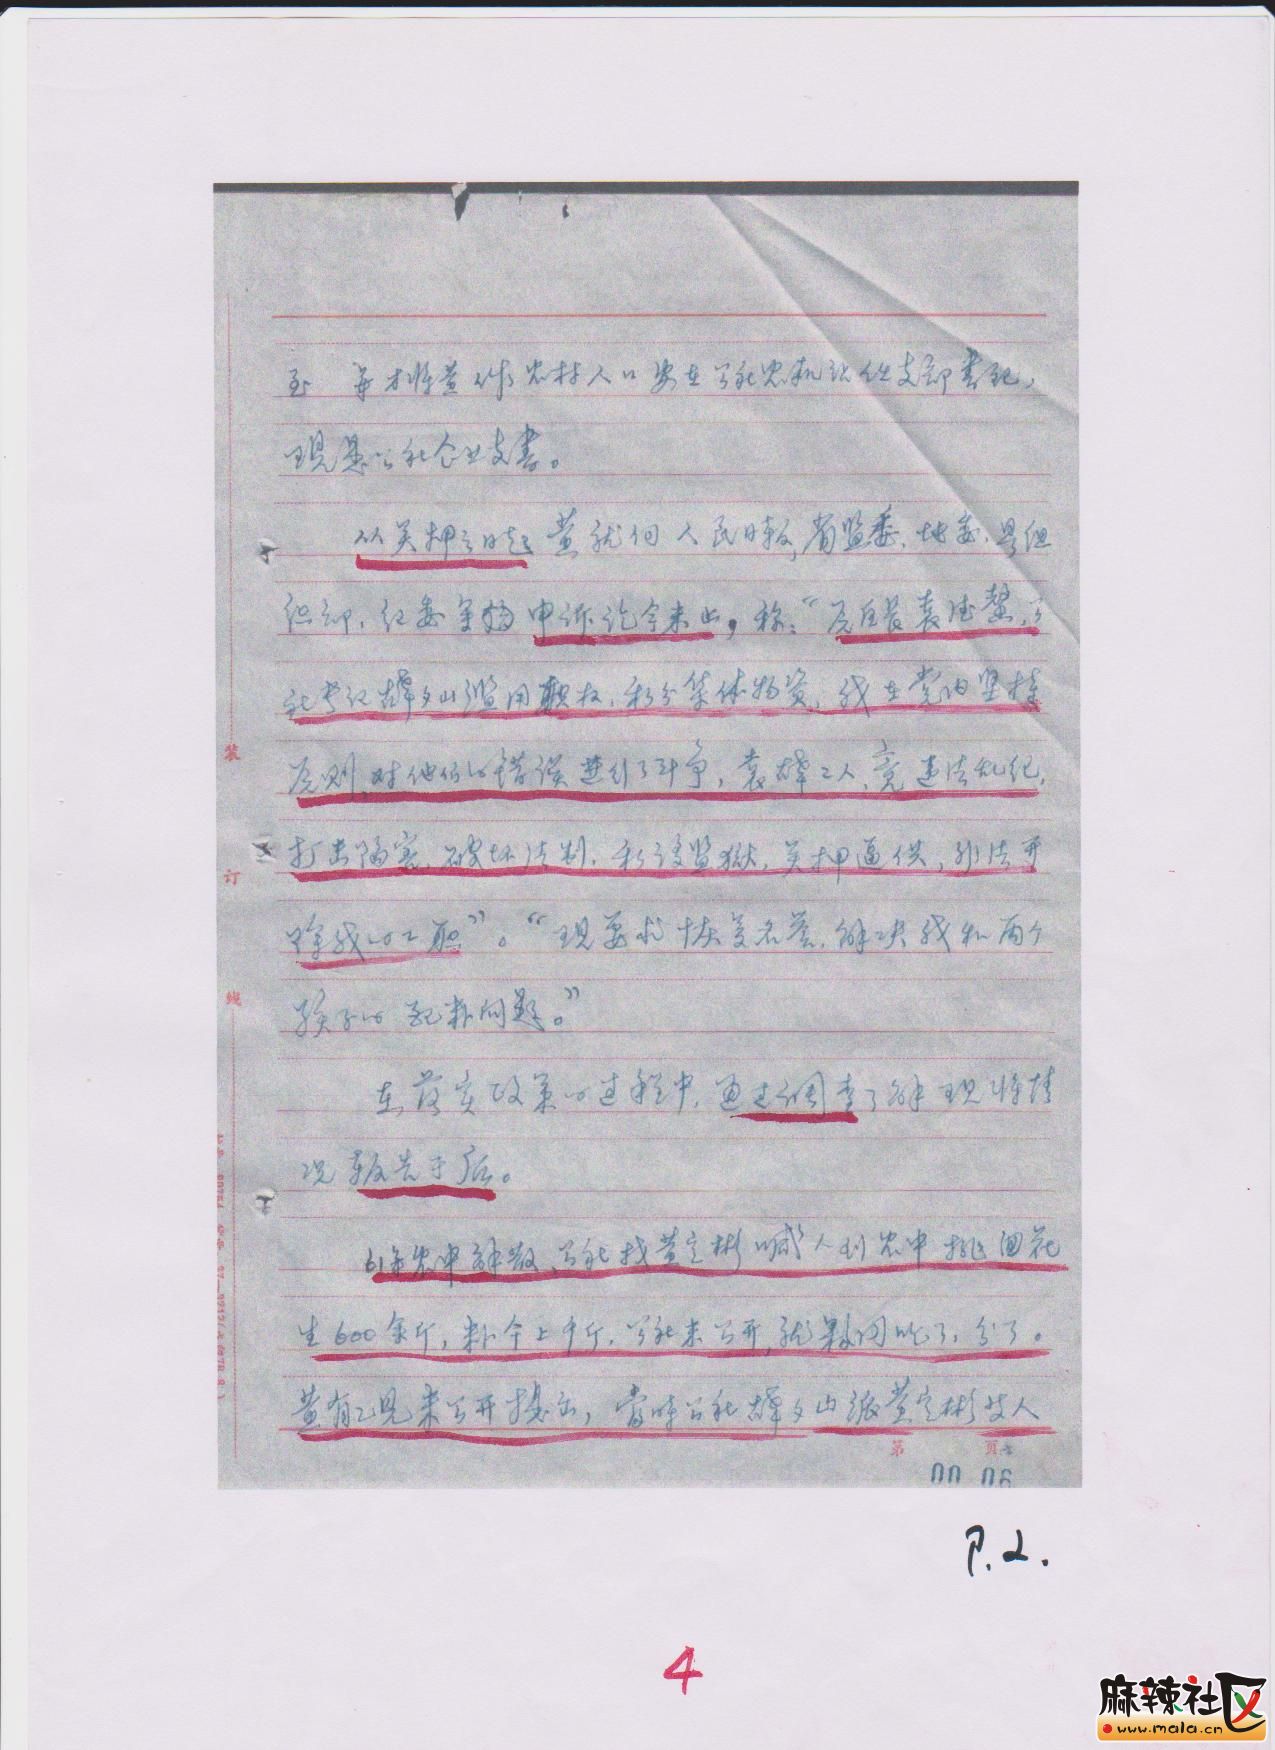 至 年才将黄作农村人口安在公社农机站任支部书记,
现是公社企业支书。
从关押之日起黄就向人民日报,省监委、地委、县组
织部、纪委等 申诉迄今未止,称:“原区长袁德馨、公
社书记 夕山滥用职权,私分集体物资,我在党内坚持
原则,对他们的错误进行了斗争,袁 二人,竟违法乱纪,
打击陷害,破坏法制,私设监狱,关押逼供,非法开
除我的工职”。“现要求恢复名誉,解决我和两个
孩子的配粮问题。”
在落实政策的过程中,通过调查了解现将情
况报告于后。
61年农中解散,公社找黄定彬喊人到农中挑回花
生600余斤,粮食上千斤,公社未公开,就 吃了,分了。
黄有意见未公开提出,当时公社 夕山派黄定彬 人
装
订
线
第 页
00 06
P.2.
4
麻辣社区
www.mala.cn